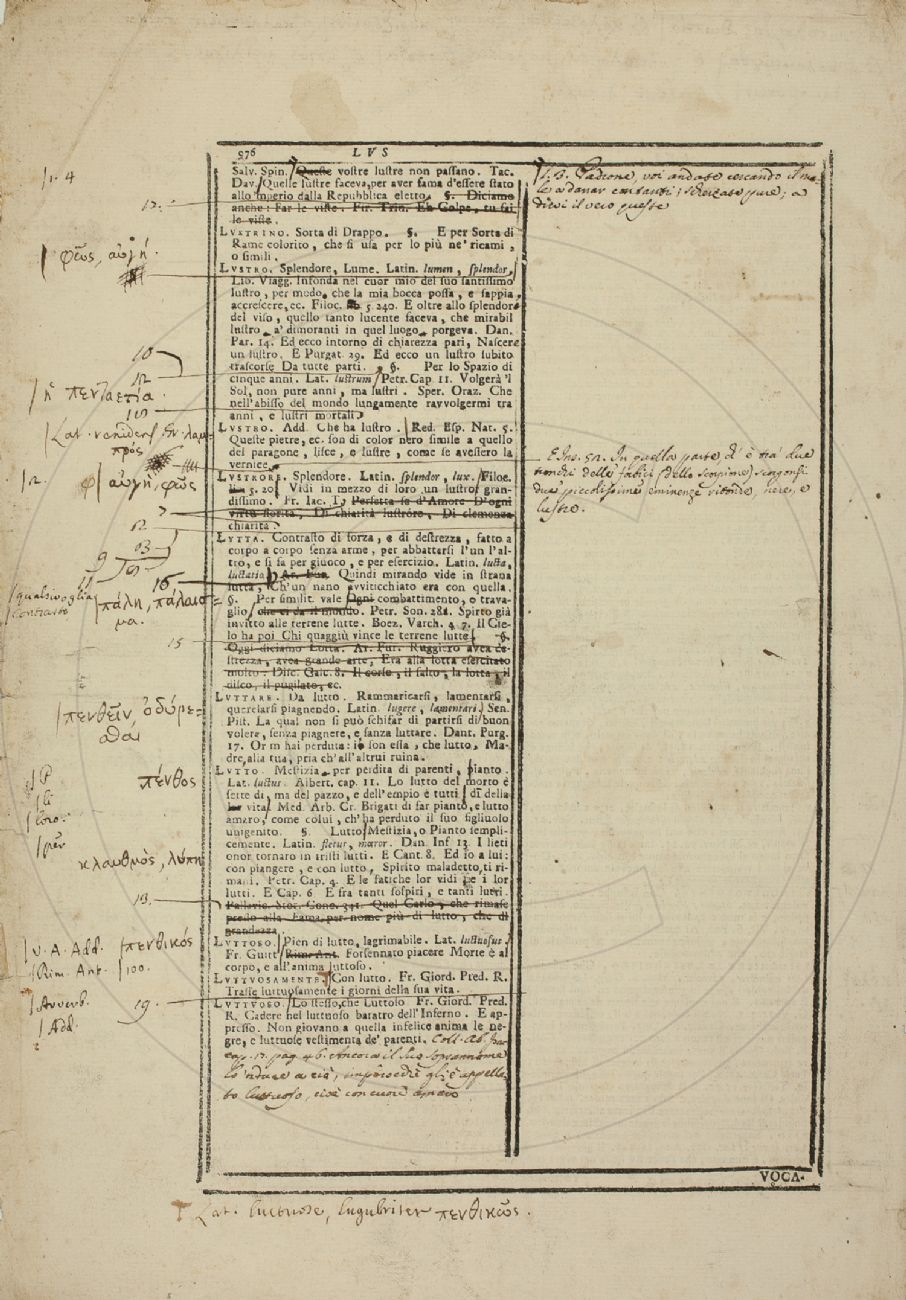 976 LVS
Salv. Spin. Queste vostre lustre non passano. Tac.
Dav. Quelle lustre faceva, per aver fama d'essere stato
allo 'mperio dalla Repubblica eletto. §. Diciamo
anche: Far le viste. Fir. Trin. Eh Golpe, tu fai
le viste.
LVSTRINO. Sorta di Drappo. §. E per Sorta di
Rame colorito, che si usa per lo più ne' ricami,
o simili.
LVSTRO. Splendore, Lume. Latin. lumen, splendor,
Lib. Viagg. Infonda nel cuor mio del suo santissimo
lustro, per modo, che la mia bocca possa, e sappia,
accrescere, ec. Filoc. 5. 240. E oltre allo splendore
del viso, quello tanto lucente faceva, che mirabil
lustro a' dimoranti in quel luogo porgeva. Dan.
Par. 14. Ed ecco intorno di chiarezza pari, Nascere
un lustro. E Purgat. 29. Ed ecco un lustro subito
trascorse Da tutte parti. §. Per lo Spazio di
cinque anni. Lat. lustrum Petr. Cap 11. Volgerà 'l
Sol, non pure anni, ma lustri. Sper. Oraz. Che
nell'abisso del mondo lungamente ravvolgermi tra
anni, e lustri mortali
LVSTRO. Add. Che ha lustro. Red. Esp. Nat. 5.
Queste pietre, ec. son di color nero simile a quello
del paragone, lisce, e lustre, come se avessero la
vernice.
LVSTRORE. Splendore. Latin. splendor, lux. Filoc.
5. 20. Vidi in mezzo di loro un lustror gran-
dissimo. Fr. Iac. T. Perfetta se d'Amore D'ogni
virtù fiorita, Di chiarità lustróre, Di clemenza
chiarita
LVTTA. Contrasto di forza, e di destrezza, fatto a
corpo a corpo senza arme, per abbattersi l'un l'al-
tro, e si fa per giuoco, e per esercizio. Latin. lucta,
luctatio Ar. Fur. Quindi mirando vide in strana
lutta, Ch'un nano avviticchiato era con quella.
§. Per similit. vale Ogni combattimento, o trava-
glio che ci da il mondo. Petr. Son. 281. Spirto già
invitto alle terrene lutte. Boez. Varch. 4 7. Il Cie-
lo ha poi Chi quaggiù vince le terrene lutte §.
Oggi diciamo Lotta. Ar. Fur. Ruggiero avea de-
strezza, avea grande arte, Era alla lotta esercitato
molto. Disc. Calc. 8. Il corso, il salto, la lotta, il
disco, il pugilato, ec.
LVTTARE. Da lutto. Rammaricarsi, lamentarsi,
querelarsi piagnendo. Latin. lugere, lamentari. Sen.
Pist. La qual non si può schifar di partirsi di buon
volere, senza piagnere, e sanza luttare. Dant. Purg.
17. Or m hai perduta: io son essa, che lutto, Ma-
dre, alla tua, pria ch'all'altrui ruina.
LVTTO. Mestizia per perdita di parenti, pianto.
Lat. luctus. Albert. cap. 11. Lo lutto del morto è
sette dì, ma del pazzo, e dell'empio è tutti dì della
lor vita Med. Arb. Cr. Brigati di far pianto, e lutto
amaro, come colui, ch'ha perduto il suo figliuolo
unigenito. §. Lutto Mestizia, o Pianto sempli-
cemente. Latin. fletus, mæror. Dan. Inf 13. I lieti
onor tornaro in tristi lutti. E Cant. 8. Ed io a lui:
con piangere, e con lutto, Spirito maladetto, ti ri-
mani. Petr. Cap. 4. E le fatiche lor vidi pe i lor
lutti. E Cap. 6 E fra tanti sospiri, e tanti lutti.
Pallavic. Stor. Conc. 331. Quel Carlo, che rimase
predo alla Fama, per nome più di lutto, che di
grandezza
LVTTOSO. Pien di lutto, lagrimabile. Lat. luctuosus.
Fr. Guitt Rim. Ant. Forsennato piacere Morte è al
corpo, e all'anima luttoso.
LVTTVOSAMENTE. Con lutto. Fr. Giord. Pred. R.
Trasse luttuosamente i giorni della sua vita.
LVTTVOSO. Lo stesso, che Luttoso Fr. Giord. Pred.
R. Cadere nel luttuoso baratro dell'Inferno. E ap-
presso. Non giovano a quella infelice anima le ne-
gre, e luttuose vestimenta de' parenti. Coll. Ab. Isac
cap. 17. pag. 46. Ancora il suo soprannome
lo 'nduce a ciò, imperocchè gli è appella-
to luttuoso, cioè con cuore amaro
Padrone, voi andate cercando il ma-
le a danar contanti; scherzate pure, a
dirvi il vero queste
E Ins. 52. In quella parte ch' è tra' due
emineri delle forbici (dello scorpione) scorgonsi
due piccolissime eminenze ritonde, nere, e
lustre.
1. 4
12.
φῶς, αὐγή.
10
12
ἡ πενταετία.
10
Lat. renidens Gr. λαμ-
πρός
12.
φ αὐγή, φῶς
12
03
9
11
16
qualsivoglia
contrasto
πάλη, πάλαισ=
μα.
15
πενθεῖν, ὀδύρε=
σθαι
πένθος
loro
per
κλαυθμός, λύπη
18.
V. A. Add. πενθικός
Rim. Ant. 100.
Avverb. 19.
Add.
VOCA-
Lat. luctuose, lugubriter πενθικῶς.